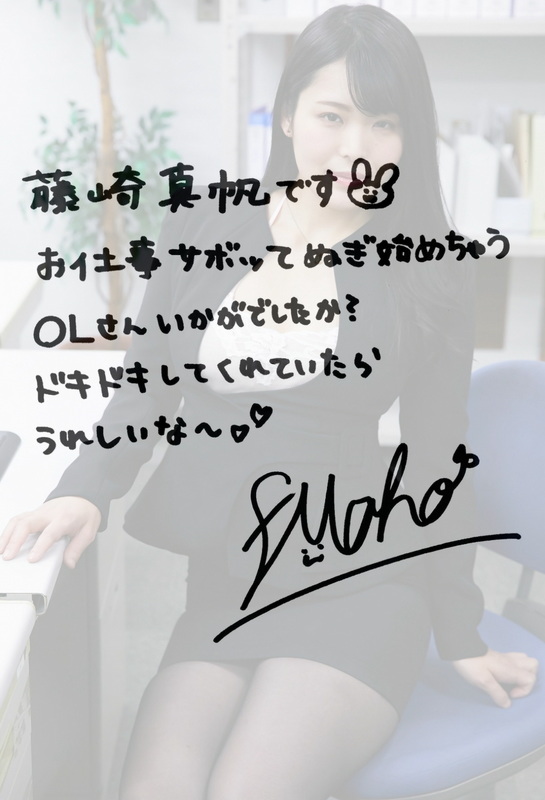 藤崎真帆です
お仕事サボッてぬぎ始めちゃう
OLさんいかがでしたか?
ドキドキしてくれていたら
うれしいな〜♡♡
F.Maho